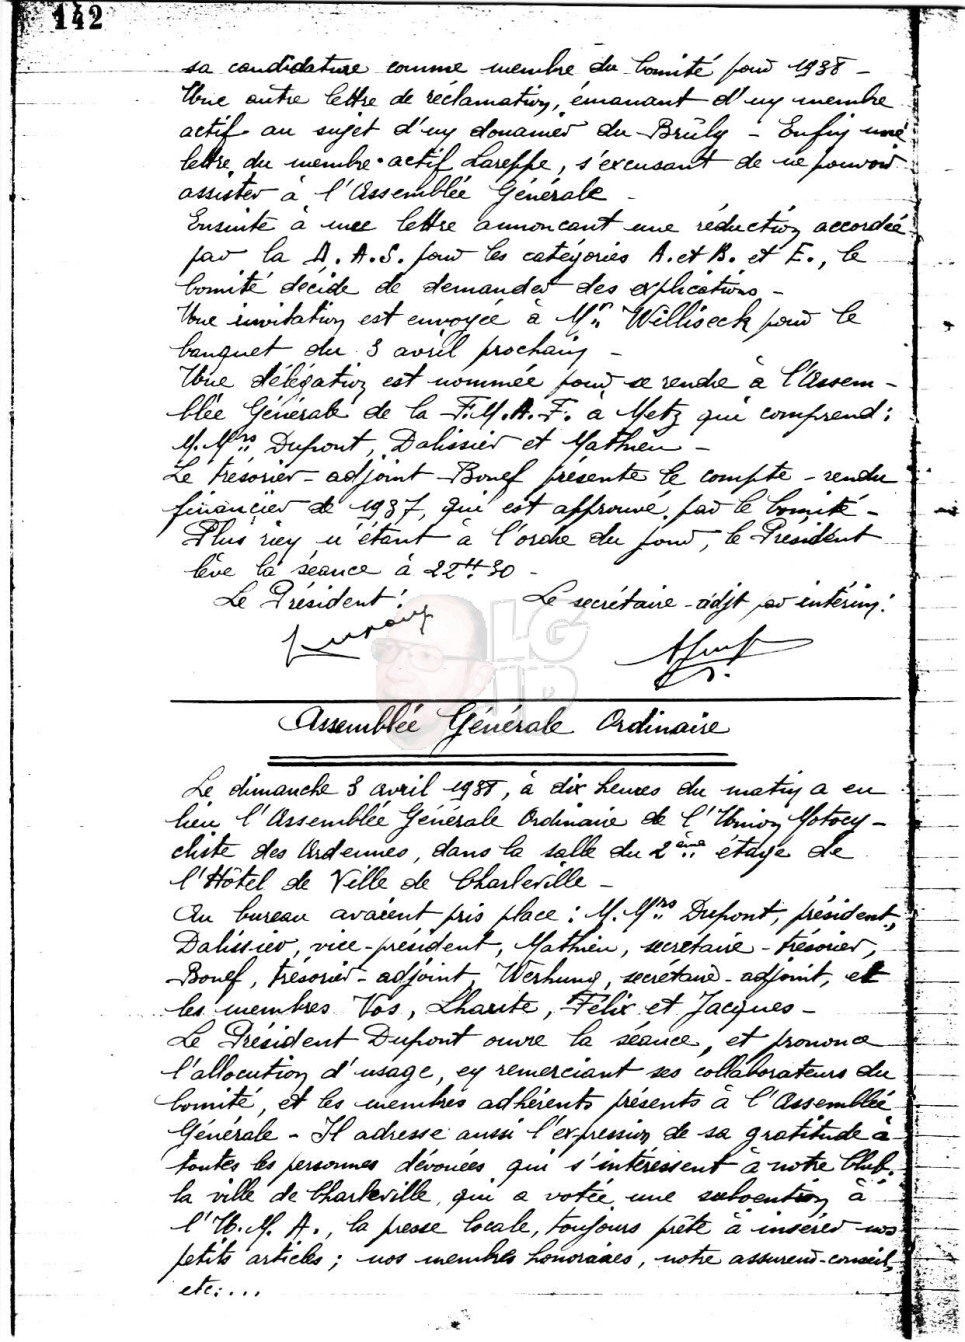 142
sa candidature comme membre du Comité pour 1938 -
Une autre lettre de réclamation, émanant d'un membre
actif au sujet d'un douanier du Brûly - Enfin une
lettre du membre actif Lareppe, s'excusant de ne pouvoir
assister à l'Assemblée Générale -
Ensuite à une lettre annonçant une réduction accordée
par la D.A.S. pour les catégories A. et B. et E., le
Comité décide de demander des explications -
Une invitation est envoyée à Mr Williseck pour le
banquet du 3 avril prochain -
Une délégation est nommée pour se rendre à l'Assem-
blée Générale de la F.M.A.F. à Metz qui comprend :
M.Mrs Dupont, Dalissier et Mathieu -
Le trésorier-adjoint Bonef présente le compte-rendu
financier de 1937, qui est approuvé par le Comité -
Plus rien n'étant à l'ordre du jour, le Président
lève la séance à 22H30 -
Le Président : Le secrétaire-adjt par intérim :
LG
JD
Assemblée Générale Ordinaire
Le dimanche 3 avril 1938, à dix heures du matin a eu
lieu l'Assemblée Générale Ordinaire de l'Union Motocy-
cliste des Ardennes, dans la salle du 2ème étage de
l'Hôtel de Ville de Charleville -
Au bureau avaient pris place : M.Mrs Dupont, président,
Dalissier, vice-président, Mathieu, secrétaire-trésorier,
Bonef, trésorier-adjoint, Werhung, secrétaire-adjoint, et
les membres Vos, Lharite, Félix et Jacques -
Le Président Dupont ouvre la séance, et prononce
l'allocution d'usage, en remerciant ses collaborateurs du
Comité, et les membres adhérents présents à l'Assemblée
Générale - Il adresse aussi l'expression de sa gratitude à
toutes les personnes dévouées qui s'intéressent à notre Club.
la ville de Charleville qui a votée une subvention à
l'U.M.A., la presse locale, toujours prête à insérer nos
petits articles ; nos membres honoraires, notre assureur-conseil,
etc....